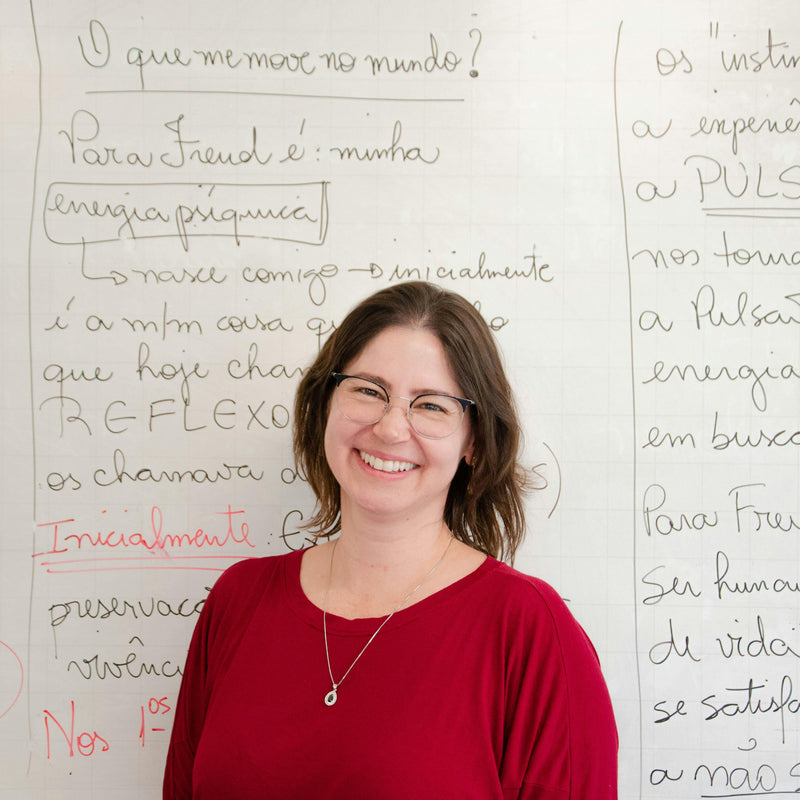 O que me move no mundo?
Para Freud é: minha
energia psíquica
nasce comigo → inicialmente
é a mpm coisa
que hoje
REFLEXO
os chamava
Inicialmente:
vivênci
Nos 1ᵒˢ
os "instin
a experiê
a PULS
nos torna
a Pulsã
energia
em busca
Para Freu
Ser human
de vida
se satisfa
a não s